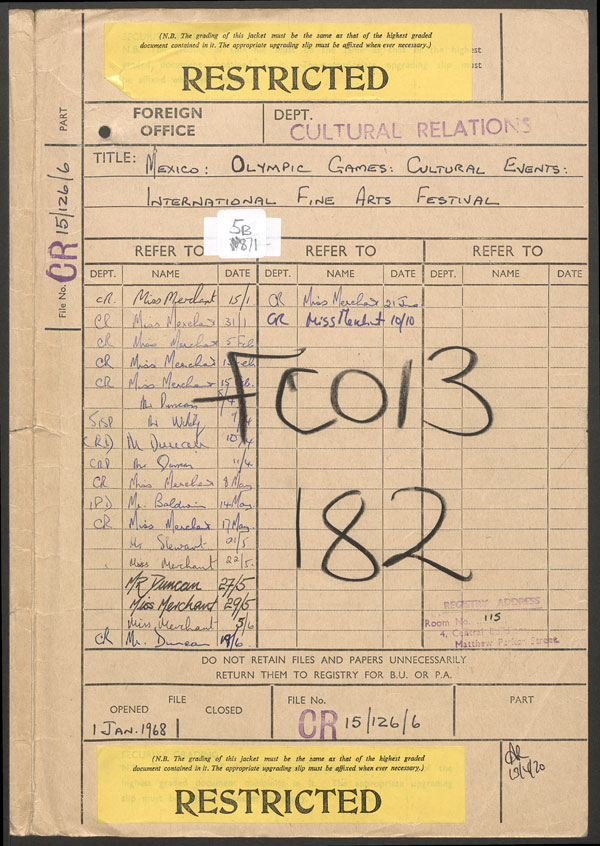 (N.B. The grading of this jacket must be the same as that of the highest graded
document contained in it. The appropriate upgrading slip must be affixed when ever necessary.)
RESTRICTED
FOREIGN
OFFICE
DEPT.
CULTURAL RELATIONS
PART
File No. CR 15/126/6
TITLE: MEXICO: OLYMPIC GAMES: CULTURAL EVENTS:
INTERNATIONAL FINE ARTS FESTIVAL
5B
REFER TO REFER TO REFER TO
DEPT. NAME DATE DEPT. NAME DATE DEPT. NAME DATE
CR. Miss Merchant 15/1 CR Miss Merchant 21 June
CR Miss Merchant 31/1 CR Miss Merchant 10/10
CR Miss Merchant 5 Feb
CR Miss Merchant
CR Miss Merchant 15 Feb.
Mr Duncan
Mr
Mr Duncan
Mr Duncan 11/4
CR Miss Merchant 8 May
IPD Mr. Baldwin 14 May
CR Miss Merchant 17 May
Mr Stewart 21/5
Miss Merchant 22/5.
MR Duncan 27/5
Miss Merchant 29/5
Miss Merchant 5/6
CR Mr. Duncan 19/6.
FCO 13
182
REGISTRY ADDRESS
Room No. 115
4, Central
Matthew Parker Street
DO NOT RETAIN FILES AND PAPERS UNNECESSARILY
RETURN THEM TO REGISTRY FOR B.U. OR P.A.
FILE
OPENED CLOSED
1 JAN. 1968
FILE No.
CR 15/126/6
PART
(N.B. The grading of this jacket must be the same as that of the highest graded
document contained in it. The appropriate upgrading slip must be affixed when ever necessary.)
RESTRICTED